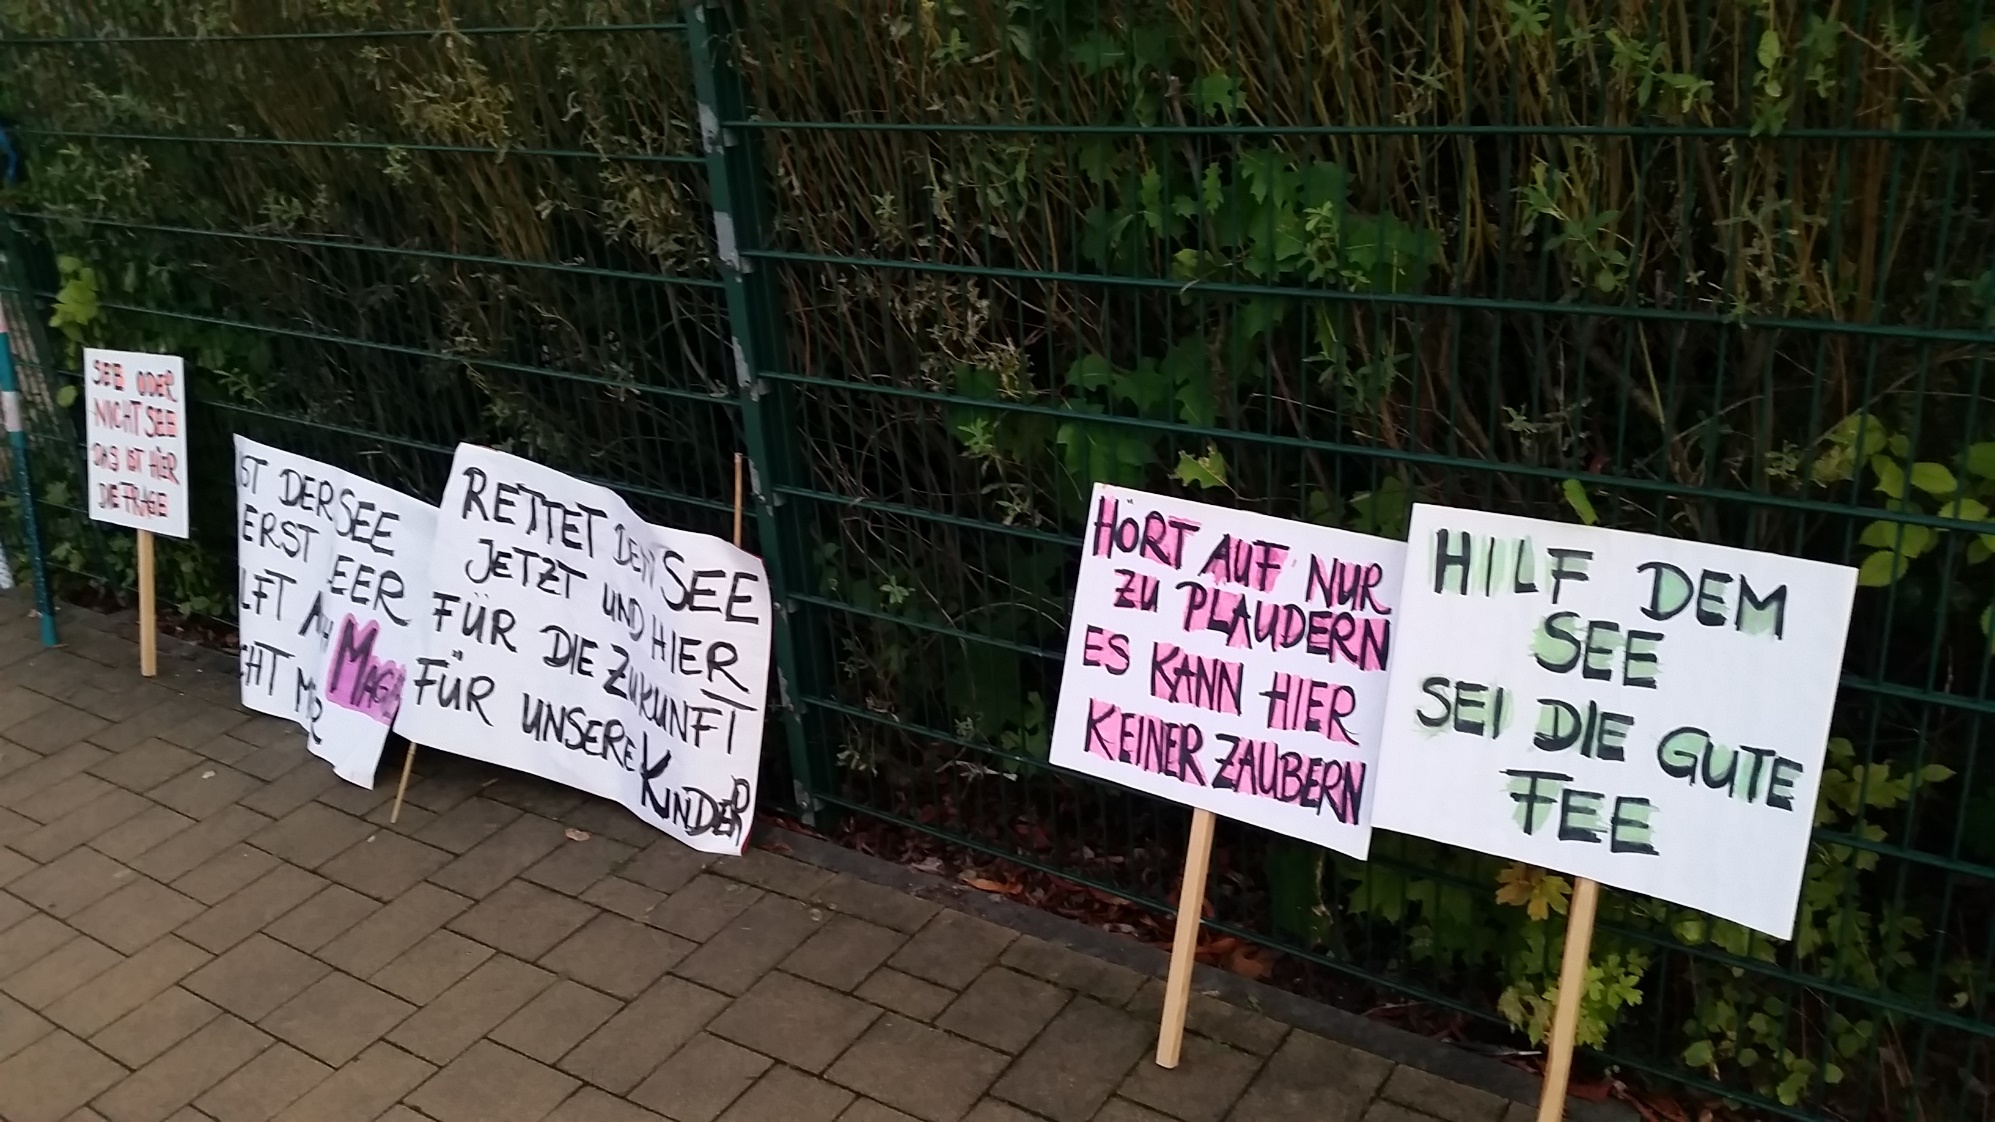 SEE ODER
NICHT SEE
DAS IST HIER
DIE FRAGE
IST DER SEE
ERST EER
LFT AU
CHT M
R
RETTET DEN SEE
JETZT UND HIER
FÜR DIE ZUKUNFT
FÜR UNSERE KINDER
HÖRT AUF NUR
ZU PLAUDERN
ES KANN HIER
KEINER ZAUBERN
HILF DEM
SEE
SEI DIE GUTE
FEE